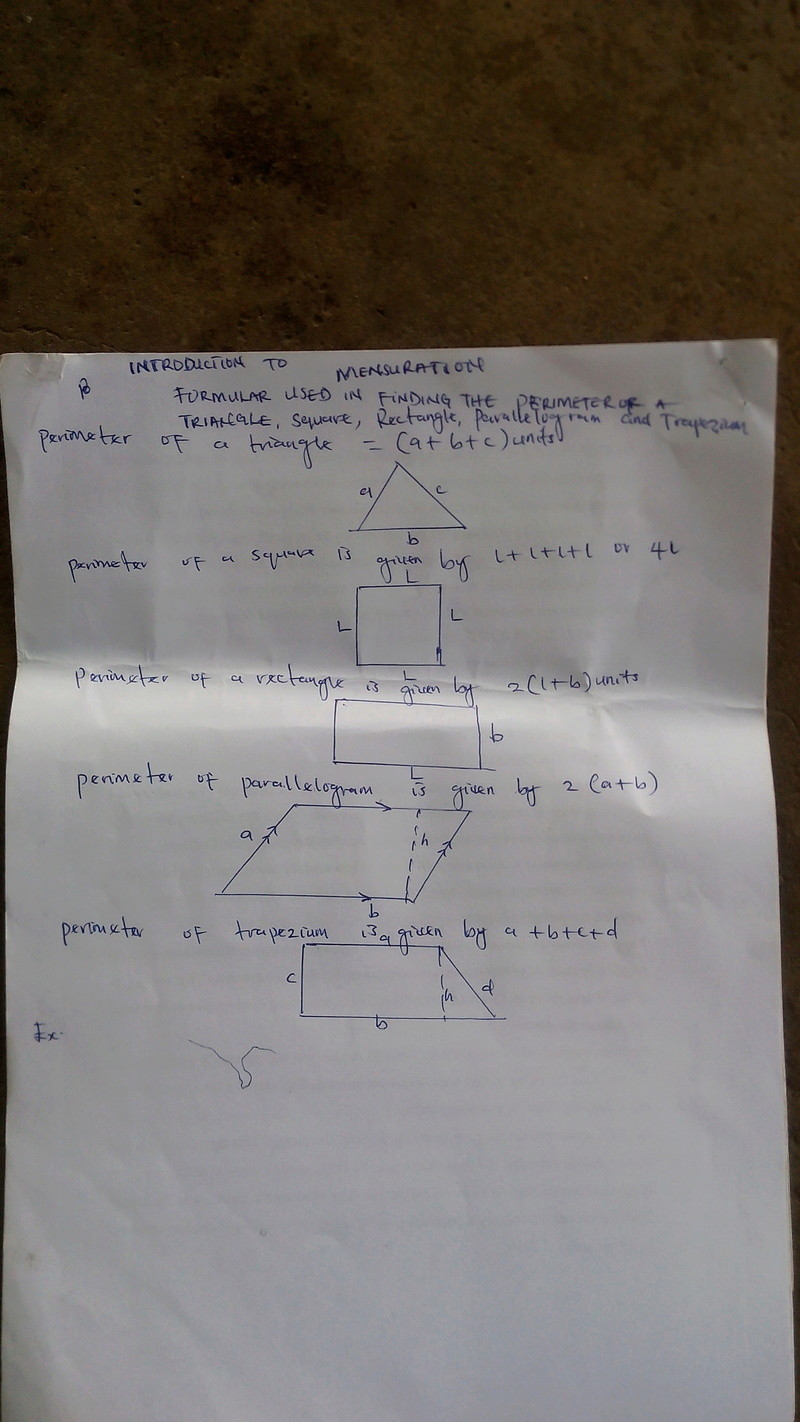 INTRODUCTION TO MENSURATION
FORMULAR USED IN FINDING THE PERIMETER OF A
TRIANGLE, Square, Rectangle, Parallelogram and Trapezium
Perimeter of a triangle = (a+b+c) units
a c
b
perimeter of a square is given by l+l+l+l or 4l
L
L L
L
Perimeter of a rectangle is given by 2(l+b) units
b
L
perimeter of parallelogram is given by 2(a+b)
a h
b
perimeter of trapezium is given by a+b+c+d
a
c h d
b
Ex.